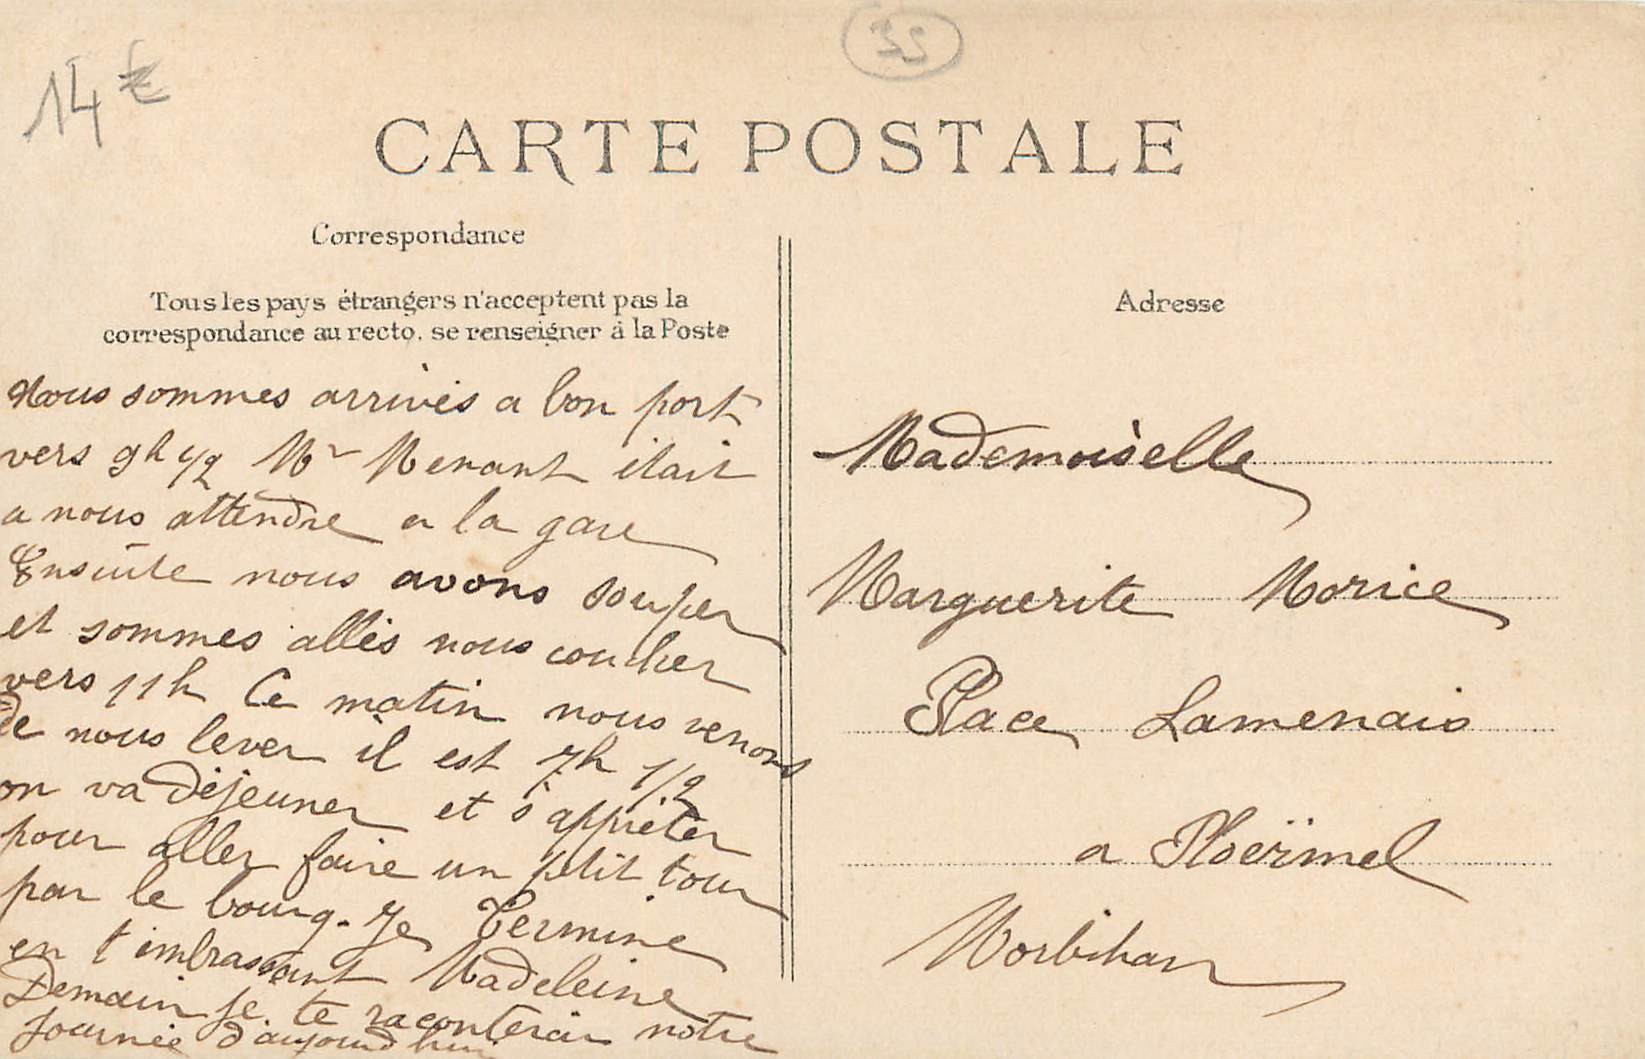 14 €
35
CARTE POSTALE
Correspondance
Tous les pays étrangers n'acceptent pas la
correspondance au recto, se renseigner à la Poste
Nous sommes arrivés a bon port
vers 9h 1/2 Mr Menant était
a nous attendre a la gare
Ensuite nous avons souper
et sommes allés nous coucher
vers 11h Ce matin nous venons
de nous lever il est 7h 1/2
on va déjeuner et s'apprêter
pour aller faire un petit tour
par le bourg. Je termine
en t'imbrassant Madeleine
Demain je te raconterai notre
journée d'aujourd'hui
Adresse
Mademoiselle
Marguerite Morice
Place Lamenais
a Ploërmel
Morbihan